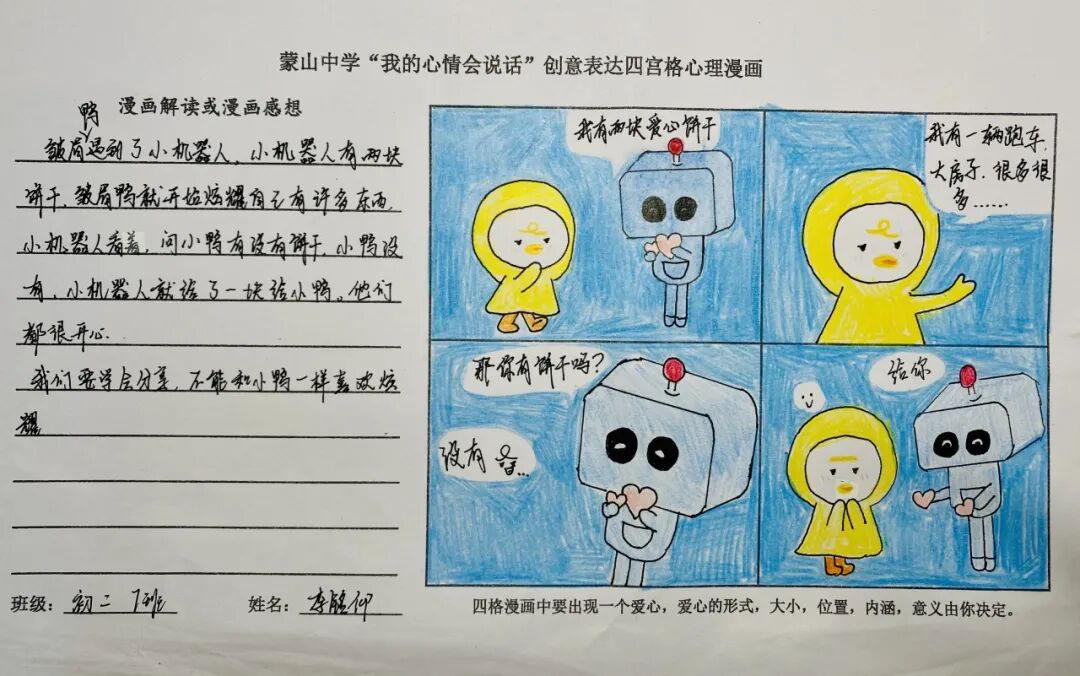 蒙山中学“我的心情会说话”创意表达四宫格心理漫画
漫画解读或漫画感想
皱眉鸭遇到了小机器人，小机器人有两块
饼干，皱眉鸭就开始炫耀自己有许多东西，
小机器人看着，问小鸭有没有饼干，小鸭没
有，小机器人就给了一块给小鸭。他们
都很开心.
我们要学会分享，不能和小鸭一样喜欢炫
耀
班级：初二7班
姓名：李
我有两块爱心饼干
我有一辆跑车，
大房子，很多很
多……
那你有饼干吗？
没有
给你
四格漫画中要出现一个爱心，爱心的形式，大小，位置，内涵，意义由你决定。